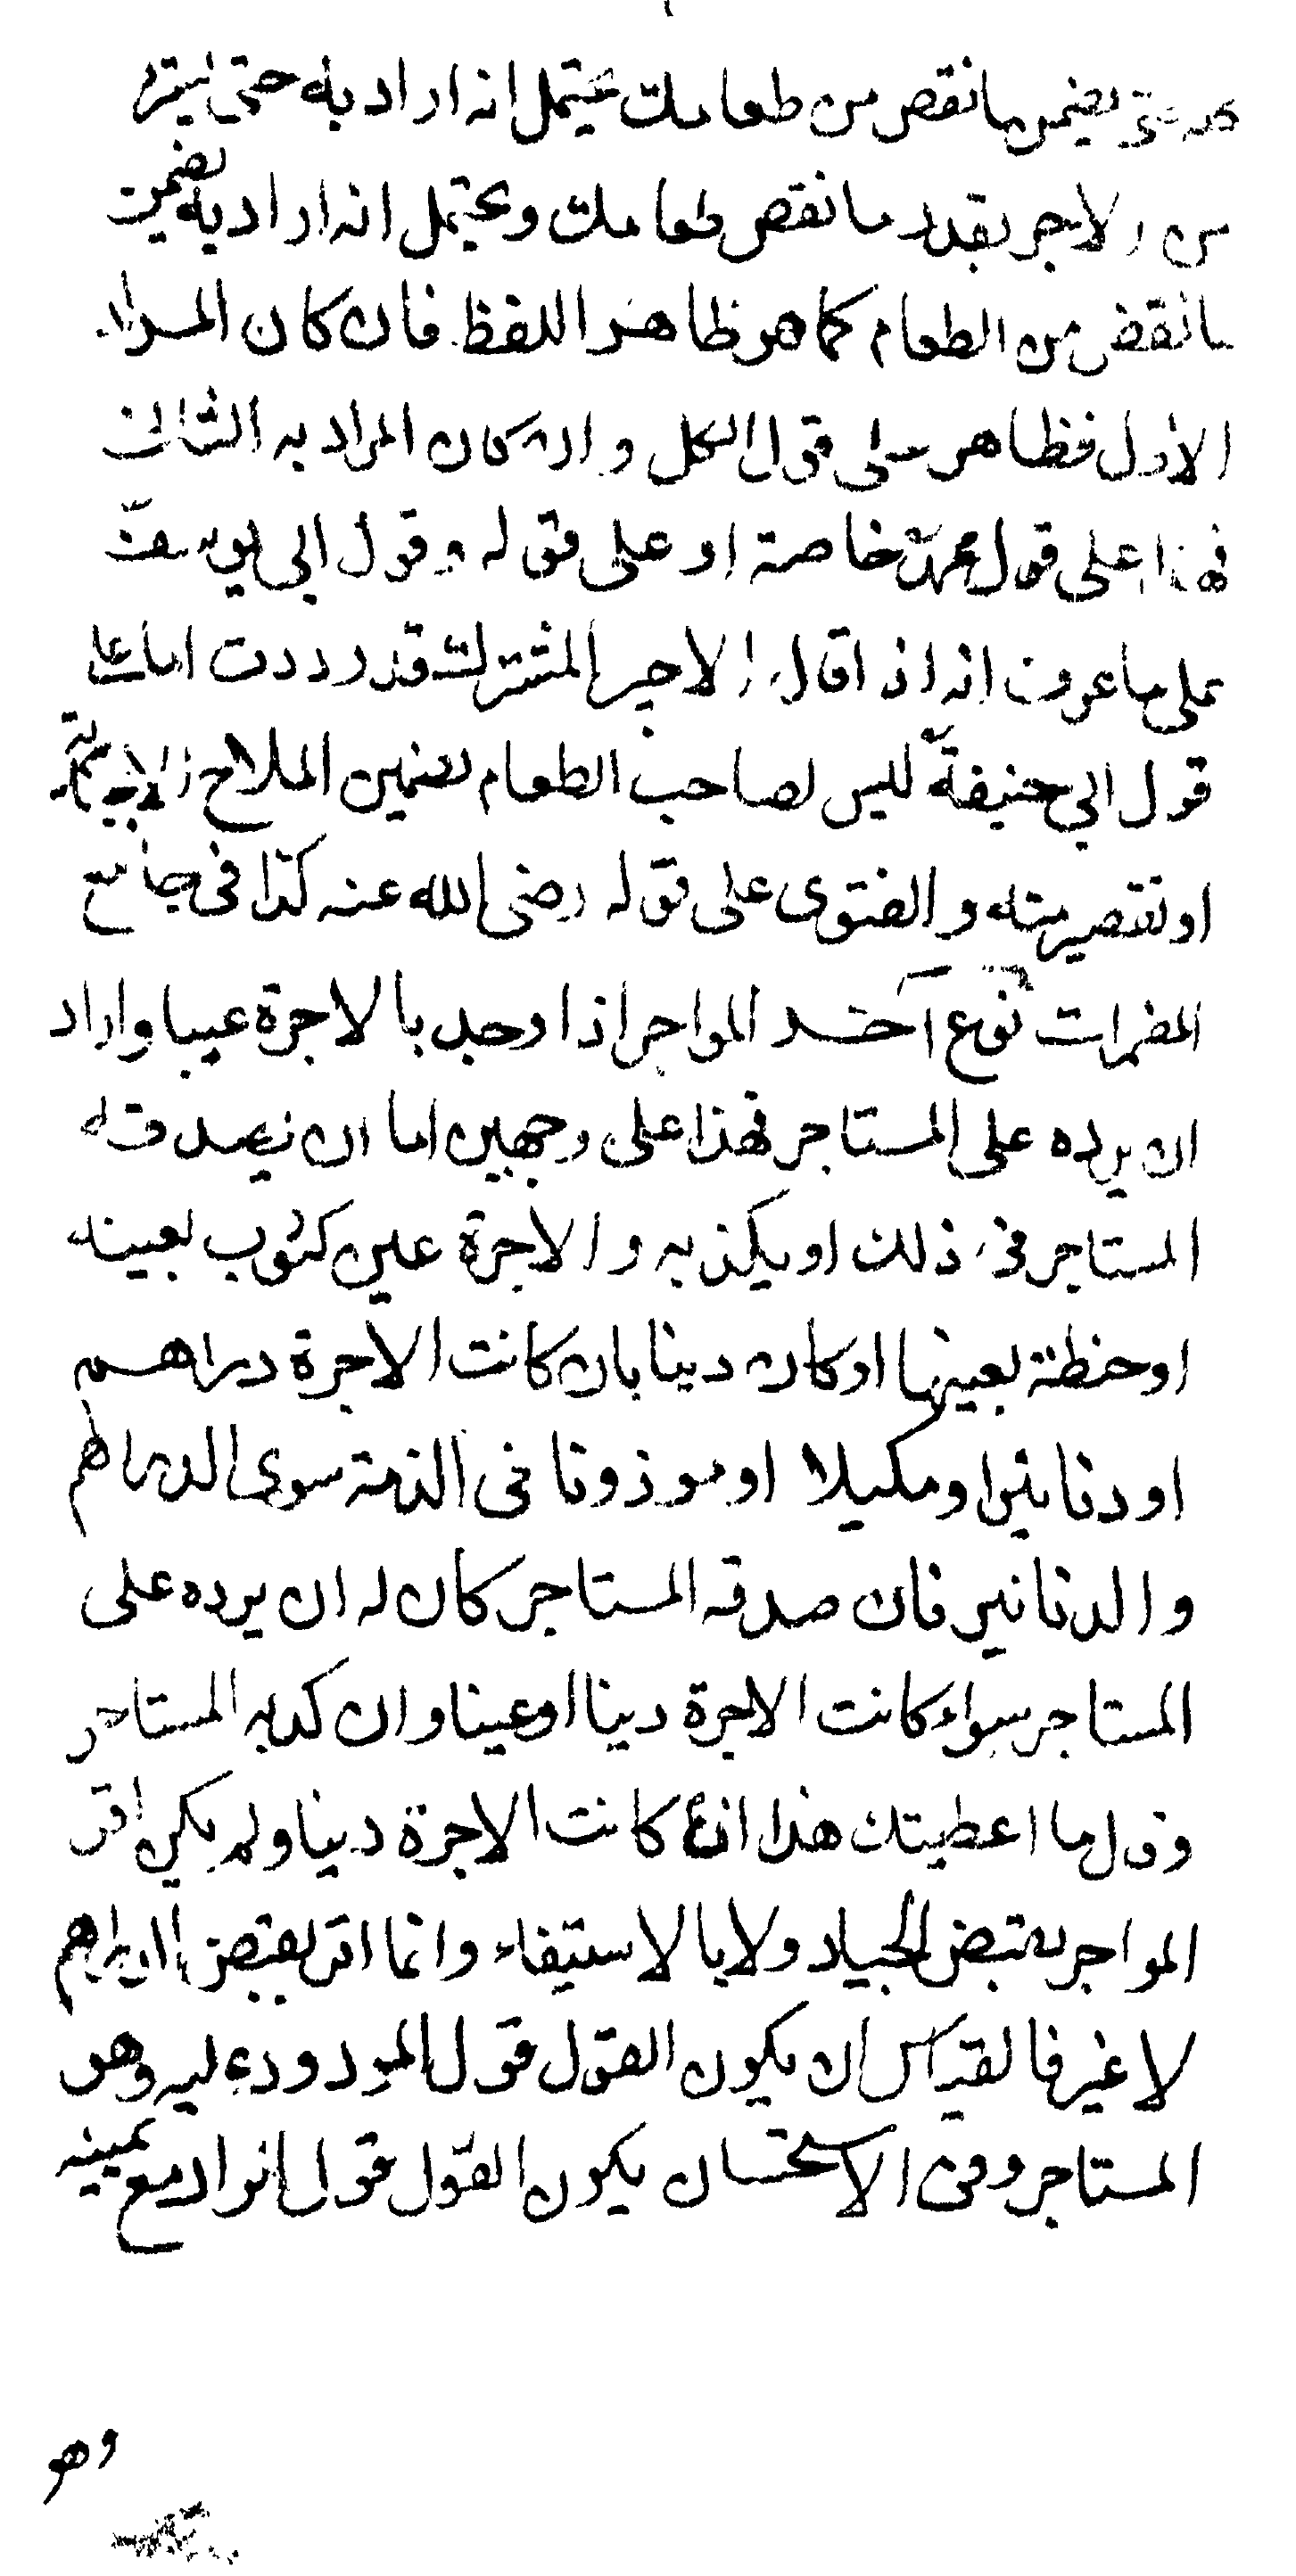 حتى يضمن ما نقص من طعامك يحتمل انه اراد به حتى يسترد
من الاجر بقدر ما نقص طعامك ويحتمل انه اراد به تضمين
ما نقص من الطعام كما هو ظاهر اللفظ فان كان المراد
الاول فظاهر على قول الكل وان كان المراد به الثاني
فهذا على قول محمد خاصة او على قوله وقول ابي يوسف
على ما عرف انه اذا قال الاجير المشترك قد رددت اما على
قول ابي حنيفة ليس لصاحب الطعام تضمين الملاح الا بجناية
او تقصير منه والفتوى على قوله رضى الله عنه كذا فى جامع
المضمرات نوع آخر المواجر اذا وجد بالاجرة عيبا واراد
ان يرده على المستاجر فهذا على وجهين اما ان يصدقه
المستاجر فى ذلك او يكذبه والاجرة عين كثوب بعينه
او حنطة بعينها او كان دينا بان كانت الاجرة دراهم
او دنانير او مكيلا او موزونا فى الذمة سوى الدراهم
والدنانير فان صدقه المستاجر كان له ان يرده على
المستاجر سواء كانت الاجرة دينا او عينا وان كذبه المستاجر
وقال ما اعطيتك هذا ان كانت الاجرة دينا ولم يكن اقر
المواجر بقبض الجياد ولا بالاستيفاء وانما اقر بقبض الدراهم
لا غير فالقياس ان يكون القول قول المردود عليه وهو
المستاجر وفى الاستحسان يكون القول قول الراد مع يمينه
وهو